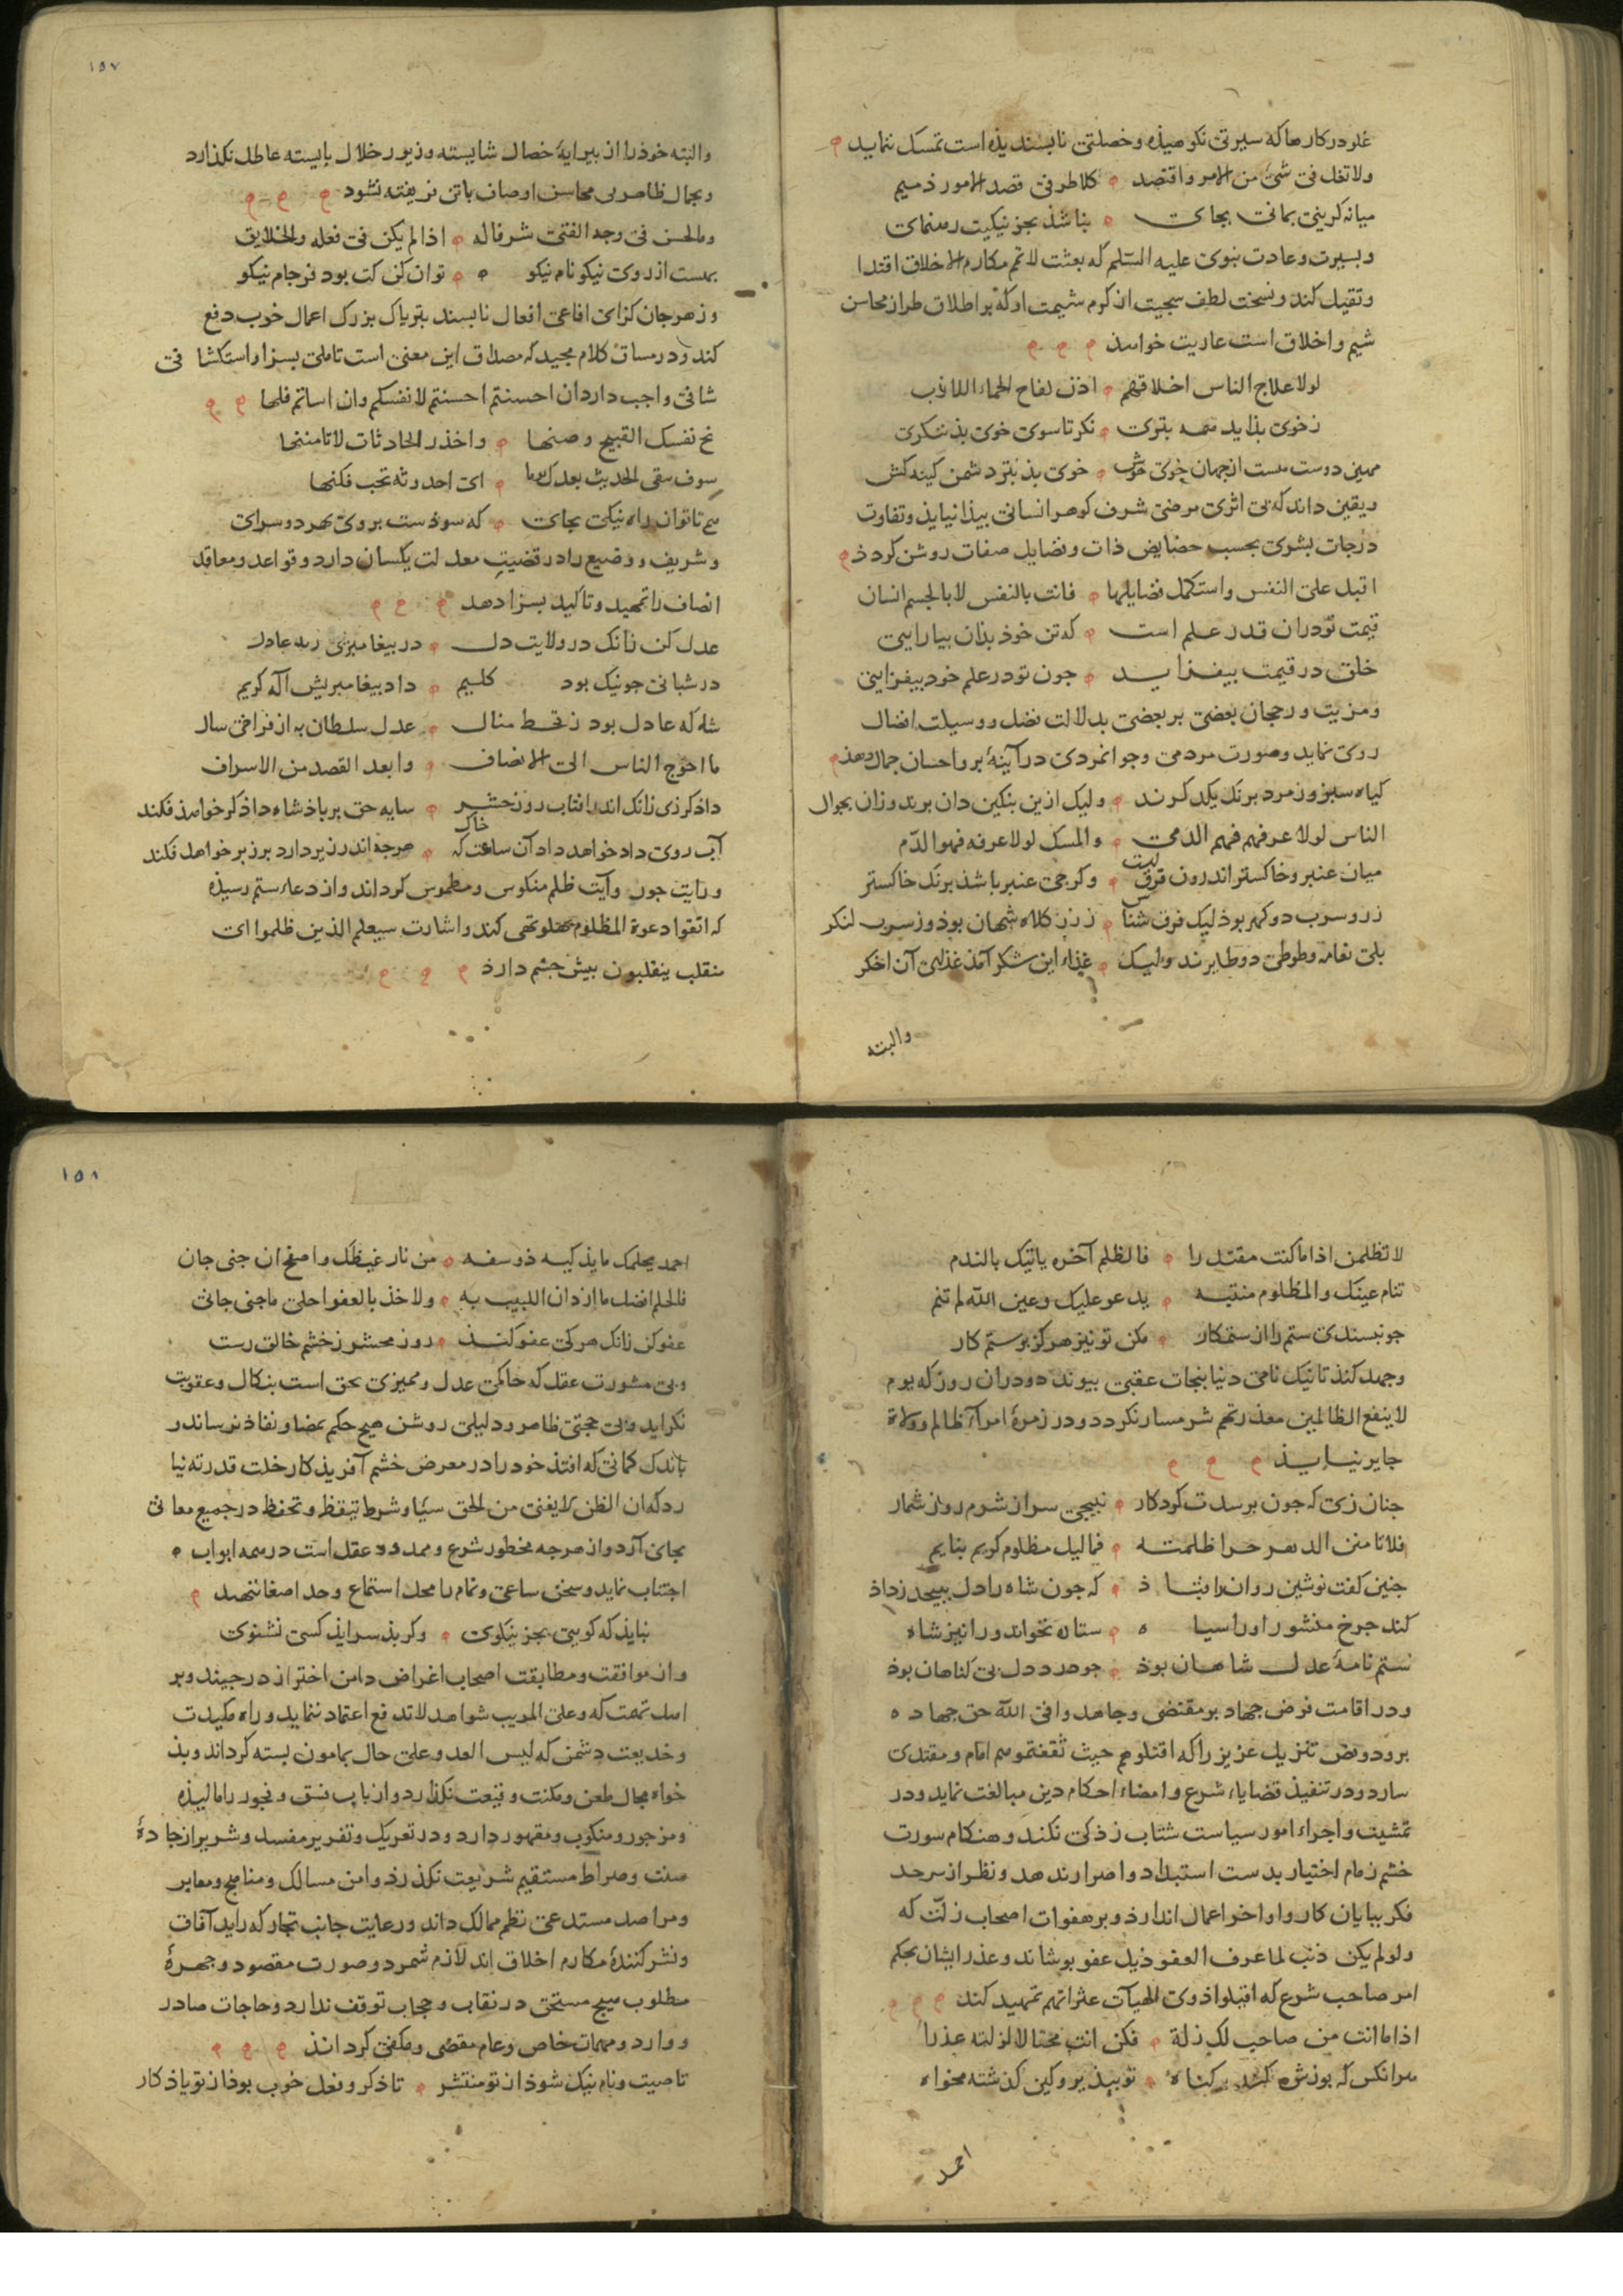 غلو در کارها که سیرتی نکوهیذه و خصلتی نابسندیذه است تمسک ننماید
ولا تغل فی شئ من الامر واقتصد کلا طرفی قصد الامور ذمیم
میانه کزینی بمانی بجای نباشذ بجز نیکیت رهنمای
و بسیرت و عادت نبوی علیه السلم که بعثت لاتمم مکارم الاخلاق اقتدا
و تقیل کند و نسخت لطف سجیت از کرم شیمت او که بر اطلاق طراز محاسن
شیم و اخلاق است عاریت خواهذ
لولا علاج الناس اخلاقهم اذن لفاح الحماء اللازب
ز خوی بذ آید همه بتری نکر تا سوی خوی بذ ننکری
مهین دوست هست از جهان خوی خوش خوی بذ بتر دشمن کینه کش
و یقین داند که بی اثری مرضی شرف کوهر انسانی بیذا نیایذ و تفاوت
درجات بشری بحسب خصایص ذات و فضایل صفات روشن کردذ
اقبل علی النفس واستکمل فضایلها فانت بالنفس لا بالجسم انسان
قیمت تو در ان قدر علم است که تن خوذ بذان بیارایی
خلق در قیمت بیفزاید جون تو در علم خود بیفزایی
و مزیت و رجحان بعضی بر بعضی بدلالت فضل و وسیلت افضال
روی نماید و صورت مردمی و جوانمردی در آینه بر و احسان جمال دهذ
کیاه سبز و زمرد برنک یکدکرند ولیک ازین بنکین دان برند و زان بجوال
الناس لولا عرفهم فهم الدمی والمسک لولا عرفه فهو الدم
میان عنبر و خاکستر اندرون فرقی است وکرجی عنبر باشذ برنک خاکستر
زر و سرب دو کهر بوذ لیک فرق شناس ز زر کلاه شهان بوذ وز سرب لنکر
بلی نعامه و طوطی دو طایرند ولیک غذاء این شکر آمذ غذای آن اخکر
والبته
١٥٧
والبته خوذ را از بیرایه خصال شایسته و زیور خلال بایسته عاطل نکذارد
و بجمال ظاهر بی محاسن اوصاف باتن فریفته نشود
وما الحسن فی وجه الفتی شرفا له اذا لم یکن فی فعله والخلایق
بهست از روی نیکو نام نیکو توان کن کت بود فرجام نیکو
و زهر جان کزای افاعی افعال نابسند بتریاک بزرک اعمال خوب دفع
کند و در مساق کلام مجید که مصداق این معنی است تاملی بسزا و استکشافی
شافی واجب دارد ان احسنتم احسنتم لانفسکم وان اساتم فلها
نح نفسک القبیح وصنها واحذر الحادثات لا تامننها
سوف یبقی الحدیث بعدک یوما ای احدوثة تحب فکنها
تا توان راه نیکی بجای که سوذست بروی بهر دو سرای
و شریف و وضیع را در قضیت معدلت یکسان دارد و قواعد و معاقد
انصاف را تمهید و تاکید بسزا دهد
عدل کن زانک در ولایت دل در بیغامبری زند عادل
در شبانی جو نیک بود کلیم داد بیغامبریش آله کریم
شه که عادل بود ز قحط منال عدل سلطان به از فراخی سال
ما احوج الناس الی الانصاف وابعد القصد من الاسراف
داذ کر زی زانک اندر افتاب روز حشر سایه حق بر باذشاه داذکر خواهذ فکند
آب روی داد خواهد داد آن ساعت که خاک هرجه اندر زیر دارد بر زبر خواهد فکند
و رایت جور و آیت ظلم منکوس و مطموس کرداند و از دعاء ستم رسیذه
که اتقوا دعوة المظلوم بهلو تهی کند و اشارت سیعلم الذین ظلموا ای
منقلب ینقلبون بیش جشم دارذ
لا تظلمن اذا ما کنت مقتدرا فالظلم آخره یاتیک بالندم
تنام عینک والمظلوم منتبه یدعو علیک وعین الله لم تنم
جو نبسندی ستم را از ستمکار مکن تو نیز هرکز بر ستم کار
و جهد کند تا نیک نامی دنیا بنجات عقبی بیوندد و در ان روز که یوم
لا ینفع الظالمین معذرتهم شرمسار نکردد و در زمره امراء ظالم و ولاة
جایر نیایذ
جنان زی که جون برسدت کردکار نبیجی سر از شرم روز شمار
فلا تامنن الدهر حرا ظلمته فما لیل مظلوم کریم بنایم
جنین کفت نوشین روان را قباذ که جون شاه را دل ببیجد ز داذ
کند جرخ منشور او را سیاه ستاره نخواند ورا نیز شاه
ستم نامه عدل شاهان بوذ جو درد دل بی کناهان بوذ
و در اقامت فرض جهاد بر مقتضی وجاهدوا فی الله حق جهاده
برود و نص تنزیل عزیز را که اقتلوهم حیث ثقفتموهم امام و مقتدی
سازد و در تنفیذ قضایاء شرع و امضاء احکام دین مبالغت نماید و در
تمشیت و اجراء امور سیاست شتاب زذکی نکند و هنکام سورت
خشم زمام اختیار بدست استبداد و اصرار ندهد و نظر از سرحد
فکر ببایان کار و اواخر اعمال اندازذ و بر هفوات اصحاب زلت که
ولو لم یکن ذنب لما عرف العفو ذیل عفو بوشاند و عذر ایشان بحکم
امر صاحب شرع که اقیلوا ذوی الهیآت عثراتهم تمهید کند
اذا ما اتت من صاحب لک زلة فکن انت محتالا لزلته عذرا
هر انکس که بوزش کند بر کناه تو ببذیر و کین کذشته مخواه
احمد
١٥٨
احمد بحلمک ما یذکیه ذو سفه من نار غیظک واصفح ان جنی جان
فالحلم افضل ما ازدان اللبیب به والاخذ بالعفو احلی ما جنی جانی
عفو کن زانک هر کی عفو کنذ روز محشر ز خشم خالق رست
و بی مشورت عقل که حاکمی عدل و ممیزی بحق است بنکال و عقوبت
نکراید و بی حجتی ظاهر و دلیلی روشن هیج حکم بمضا و نفاذ نرساند و
باندک کمانی که افتذ خود را در معرض خشم آفریذکار جلت قدرته نیا
رد که ان الظن لا یغنی من الحق شیئا و شرط تیقظ و تحفظ در جمیع معانی
بجای آرد و از هرجه محظور شرع و ممدود عقل است در همه ابواب
اجتناب نماید و سخن ساعی و نمام را محل استماع و حد اصغا ننهد
نبایذ که کویی بجز نیکوی وکر بذ سرایذ کسی نشنوی
و از موافقت و مطابقت اصحاب اغراض دامن احتراز درجیند و بر
اهل تهمت که وعلی المریب شواهد لا تدفع اعتماد ننماید و راه مکیدت
و خدیعت دشمن که لیس العدو علی حال بمامون بسته کرداند و بذ
خواه مجال طعن و مکنت وقیعت نکذارد و ارباب فسق و فجور را مالیذه
و مزجور و منکوب و مقهور دارد و در تعریک و تقریر مفسد و شریر از جاده
سنت و صراط مستقیم شریعت نکذرذ و امن مسالک و مناهج و معابر
و مراصد مستدعی نظم ممالک داند و رعایت جانب تجار که راید آفاق
و نشر کننده مکارم اخلاق اند لازم شمرد و صورت مقصود و جهره
مطلوب هیج مستحق در نقاب و حجاب توقف ندارد و حاجات صادر
و وارد و مهمات خاص و عام مقضی و مکفی کردانذ
تا صیت و نام نیک شوذ از تو منتشر تا ذکر و فعل خوب بوذ از تو یاذکار